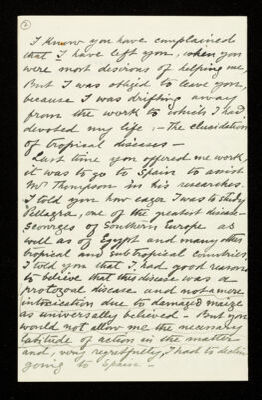 2
I know you have complained
that I have left you, when you
were most desirous of helping me,
But I was obliged to leave you,
because I was drifting away
from the work to which I had
devoted my life :- The elucidation
of tropical diseases -
Last time you offered me work,
it was to go to Spain to assist
Mr Thompson in his researches.
I told you how eager I was to study
Pellagra, one of the greatest disease-
scourges of Southern Europe as
well as of Egypt and many other
tropical and subtropical countries,
I told you that I had good reasons
to believe that this disease was a
protozoal disease and not a mere
intoxication due to damaged maize
as universally believed - But you
would not allow me the necessary
latitude of action in the matter
and, very regretfully, I had to decline
going to Spain -